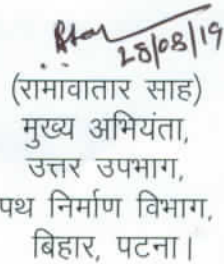 28/08/19
(रामावातार साह)
मुख्य अभियंता,
उत्तर उपभाग,
पथ निर्माण विभाग,
बिहार, पटना।